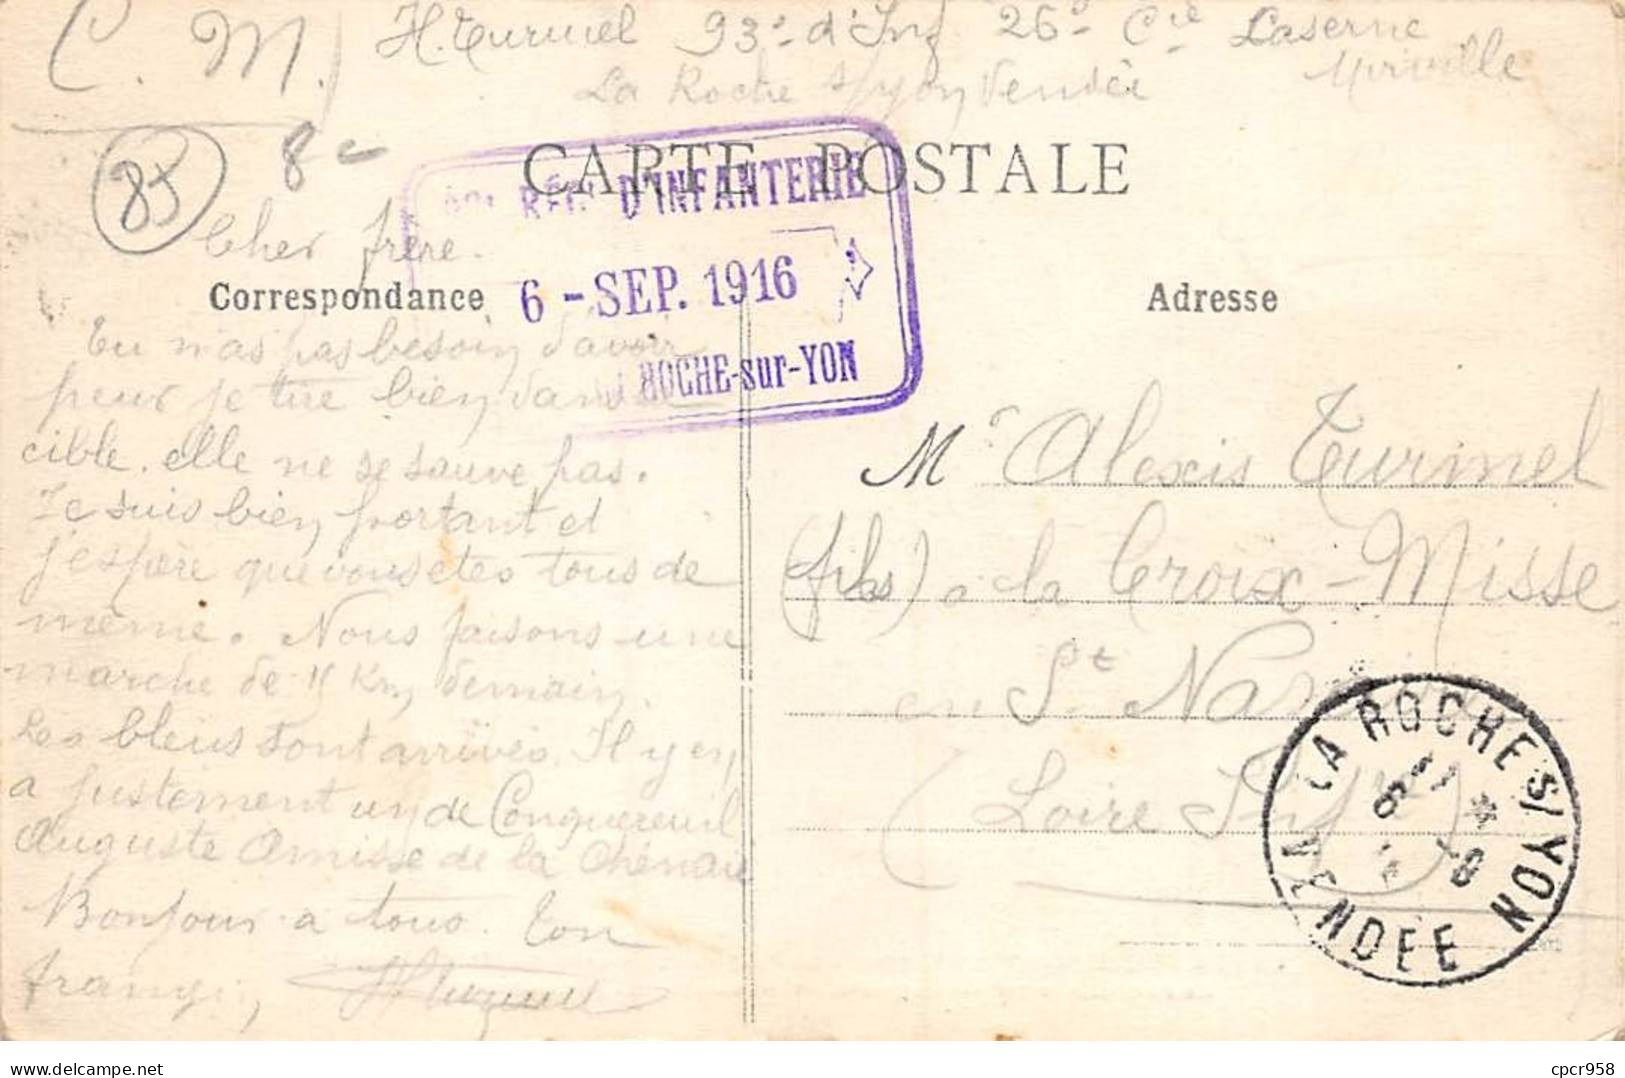 C. M. H. Turmel 93e d'Inf 26e Cie Caserne
La Roche s/yon Vendée
85
8-
CARTE POSTALE
RÉGt D'INFANTERIE
6 - SEP. 1916
ROCHE-sur-YON
Correspondance
Adresse
Cher frère.
Tu n'as pas besoin d'avoir
peur je tire bien dans la
cible. elle ne se sauve pas.
Je suis bien portant et
j'espère que vous etes tous de
même. Nous faisons une
marche de Km demain.
Les bleus sont arrivés. Il y en
a justement un de Conquereuil
Auguste Amisse de la Chênaie
Bonjour a tous. Ton
frangin, HTurmel
Mr Alexis Turmel
(fils) a la Croix-Misse
en St Nazaire
(Loire Infre)
LA ROCHE S/ YON
6 - 9
VENDEE
cpcr958